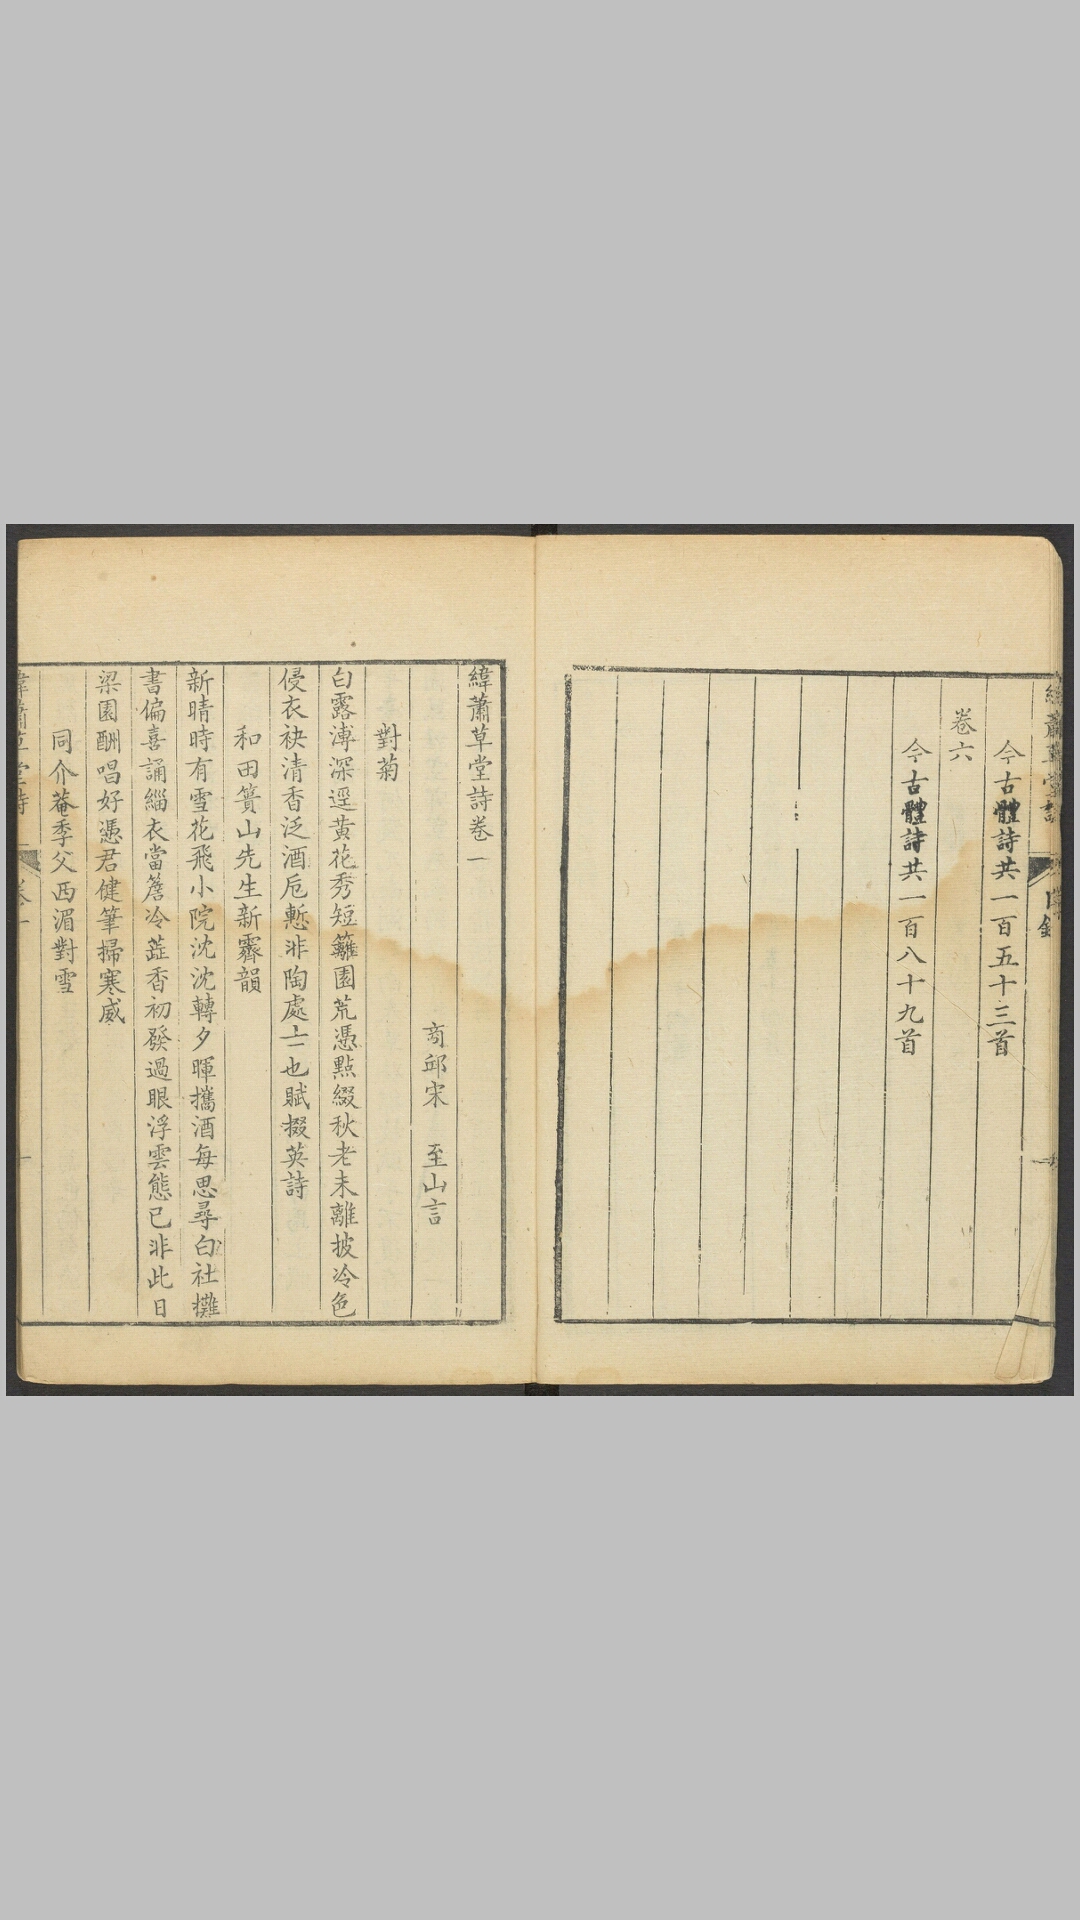 今古體詩共一百五十三首
卷六
今古體詩共一百八十九首
緯蕭草堂詩卷一
商邱宋 至山言
對菊
白露漙深逕黃花秀短籬園荒憑點綴秋老未離披冷色
侵衣袂清香泛酒卮慙非陶處士也賦掇英詩
和田簣山先生新霽韻
新晴時有雪花飛小院沈沈轉夕暉攜酒每思尋白社攤
書偏喜誦緇衣當簷冷蕋香初發過眼浮雲態已非此日
梁園酬唱好憑君健筆掃寒威
同介菴季父西湄對雪